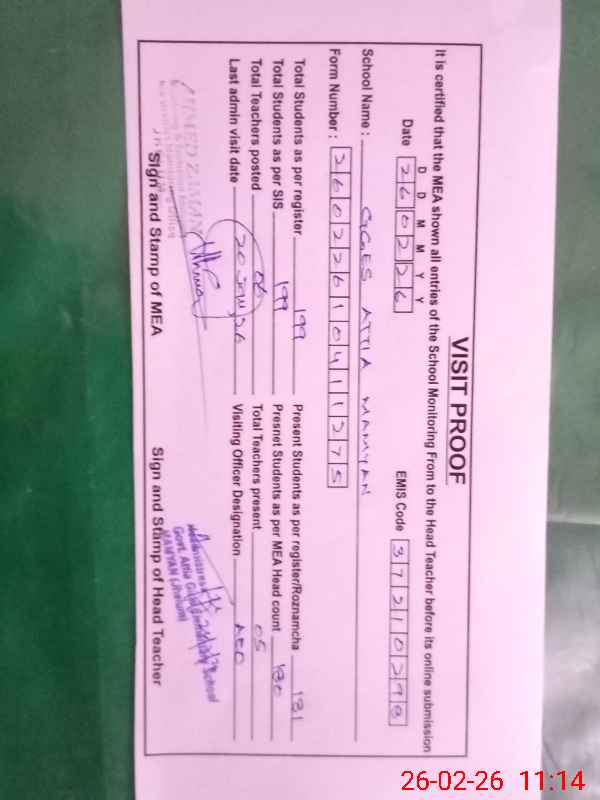 VISIT PROOF
It is certified that the MEA shown all entries of the School Monitoring From to the Head Teacher before its online submission
D D M M Y Y
Date 260226 EMIS Code 37210298
School Name : GGES ATTIA MAMYAN
Form Number : 26022610411275
Total Students as per register 199 Present Students as per register/Roznamcha 181
Total Students as per SIS 199 Presnet Students as per MEA Head count 180
Total Teachers posted 06 Total Teachers present 05
Last admin visit date 20 Visiting Officer Designation AEO
Sign and Stamp of MEA Sign and Stamp of Head Teacher
Govt. Attia Girls School
MAMYAN (Jhelum)
26-02-26 11:14